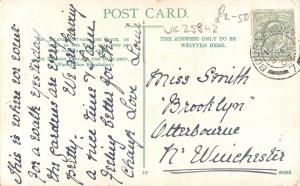 POST CARD.
£2-50
THE ADDRESS ONLY TO BE
WRITTEN HERE.
This is where we went
for a walk yesterday
the gardens are very
pretty. We are having
a nice time & am
feeling better for the
change Love
Miss Smith
"Brooklyn"
Otterbourne
Nr Winchester